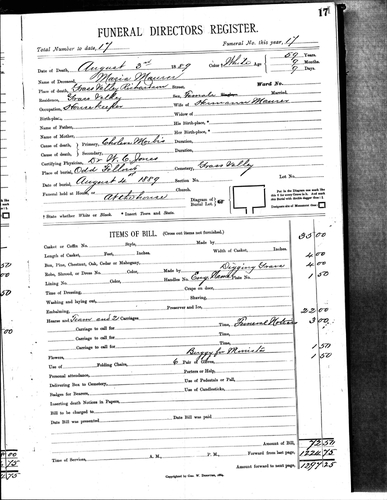 17
FUNERAL DIRECTORS REGISTER.
Total Number to date, 17 Funeral No. this year, 17
Date of Death, August 3rd 1889 Color † White Age 59 Years.
9 Months.
9 Days.
Name of Deceased, Maria Maurer
Place of Death, Grass Valley Richardson Street, Ward No.
Residence, Grass Valley Sex, Female Married.
Occupation, Housekeeper Wife of Hermann Maurer
Birth-place, Widow of
Name of Father, His Birth-place,
Name of Mother, Her Birth-place,
Cause of death, Primary, Cholera Morbus Duration,
Cause of death, Secondary, Duration,
Certifying Physician, Dr W. C. Jones
Place of burial, Odd Fellows Cemetery, Grass Valley
Date of burial, August 4th 1889 Section No. Lot No.
Funeral held at House, at the house Church. Diagram of Burial Lot,
For in the Diagram mark the
Designate size of Monument thus
† State whether White or Black. * Insert Town and State.
ITEMS OF BILL. (Cross out items not furnished.)
Casket or Coffin No. Style, Made by 35 00
Length of Casket, Feet, Inches. Width of Casket, Inches.
Box, Pine, Chestnut, Oak, Cedar or Mahogany, Digging Grave 4 00
Robe, Shroud, or Dress No. Color, Made by 4 00
Lining No. Color, Handles No. Plate No. 1 50
Time of Dressing, Crape on door,
Washing and laying out, Shaving,
Embalming, Preserver and Ice,
Hearse and Team and 2 Carriages 22 00
Carriage to call for Time, Funeral Notices 3 00
Carriage to call for Time,
Carriage to call for Time,
Flowers, Buggy for Minister 1 50
Use of Folding Chairs, 6 Pair of Gloves, 1 50
Personal attendance, Porters or Help,
Delivering Box to Cemetery, Use of Pedestals or Pall,
Badges for Bearers, Use of Candlesticks,
Inserting death Notices in Papers,
Bill to be charged to
Date Bill was presented Date Bill was paid
Amount of Bill, 72 50
Time of Services, A. M., P. M. Forward from last page, 1224 75
Amount forward to next page, 1297 25